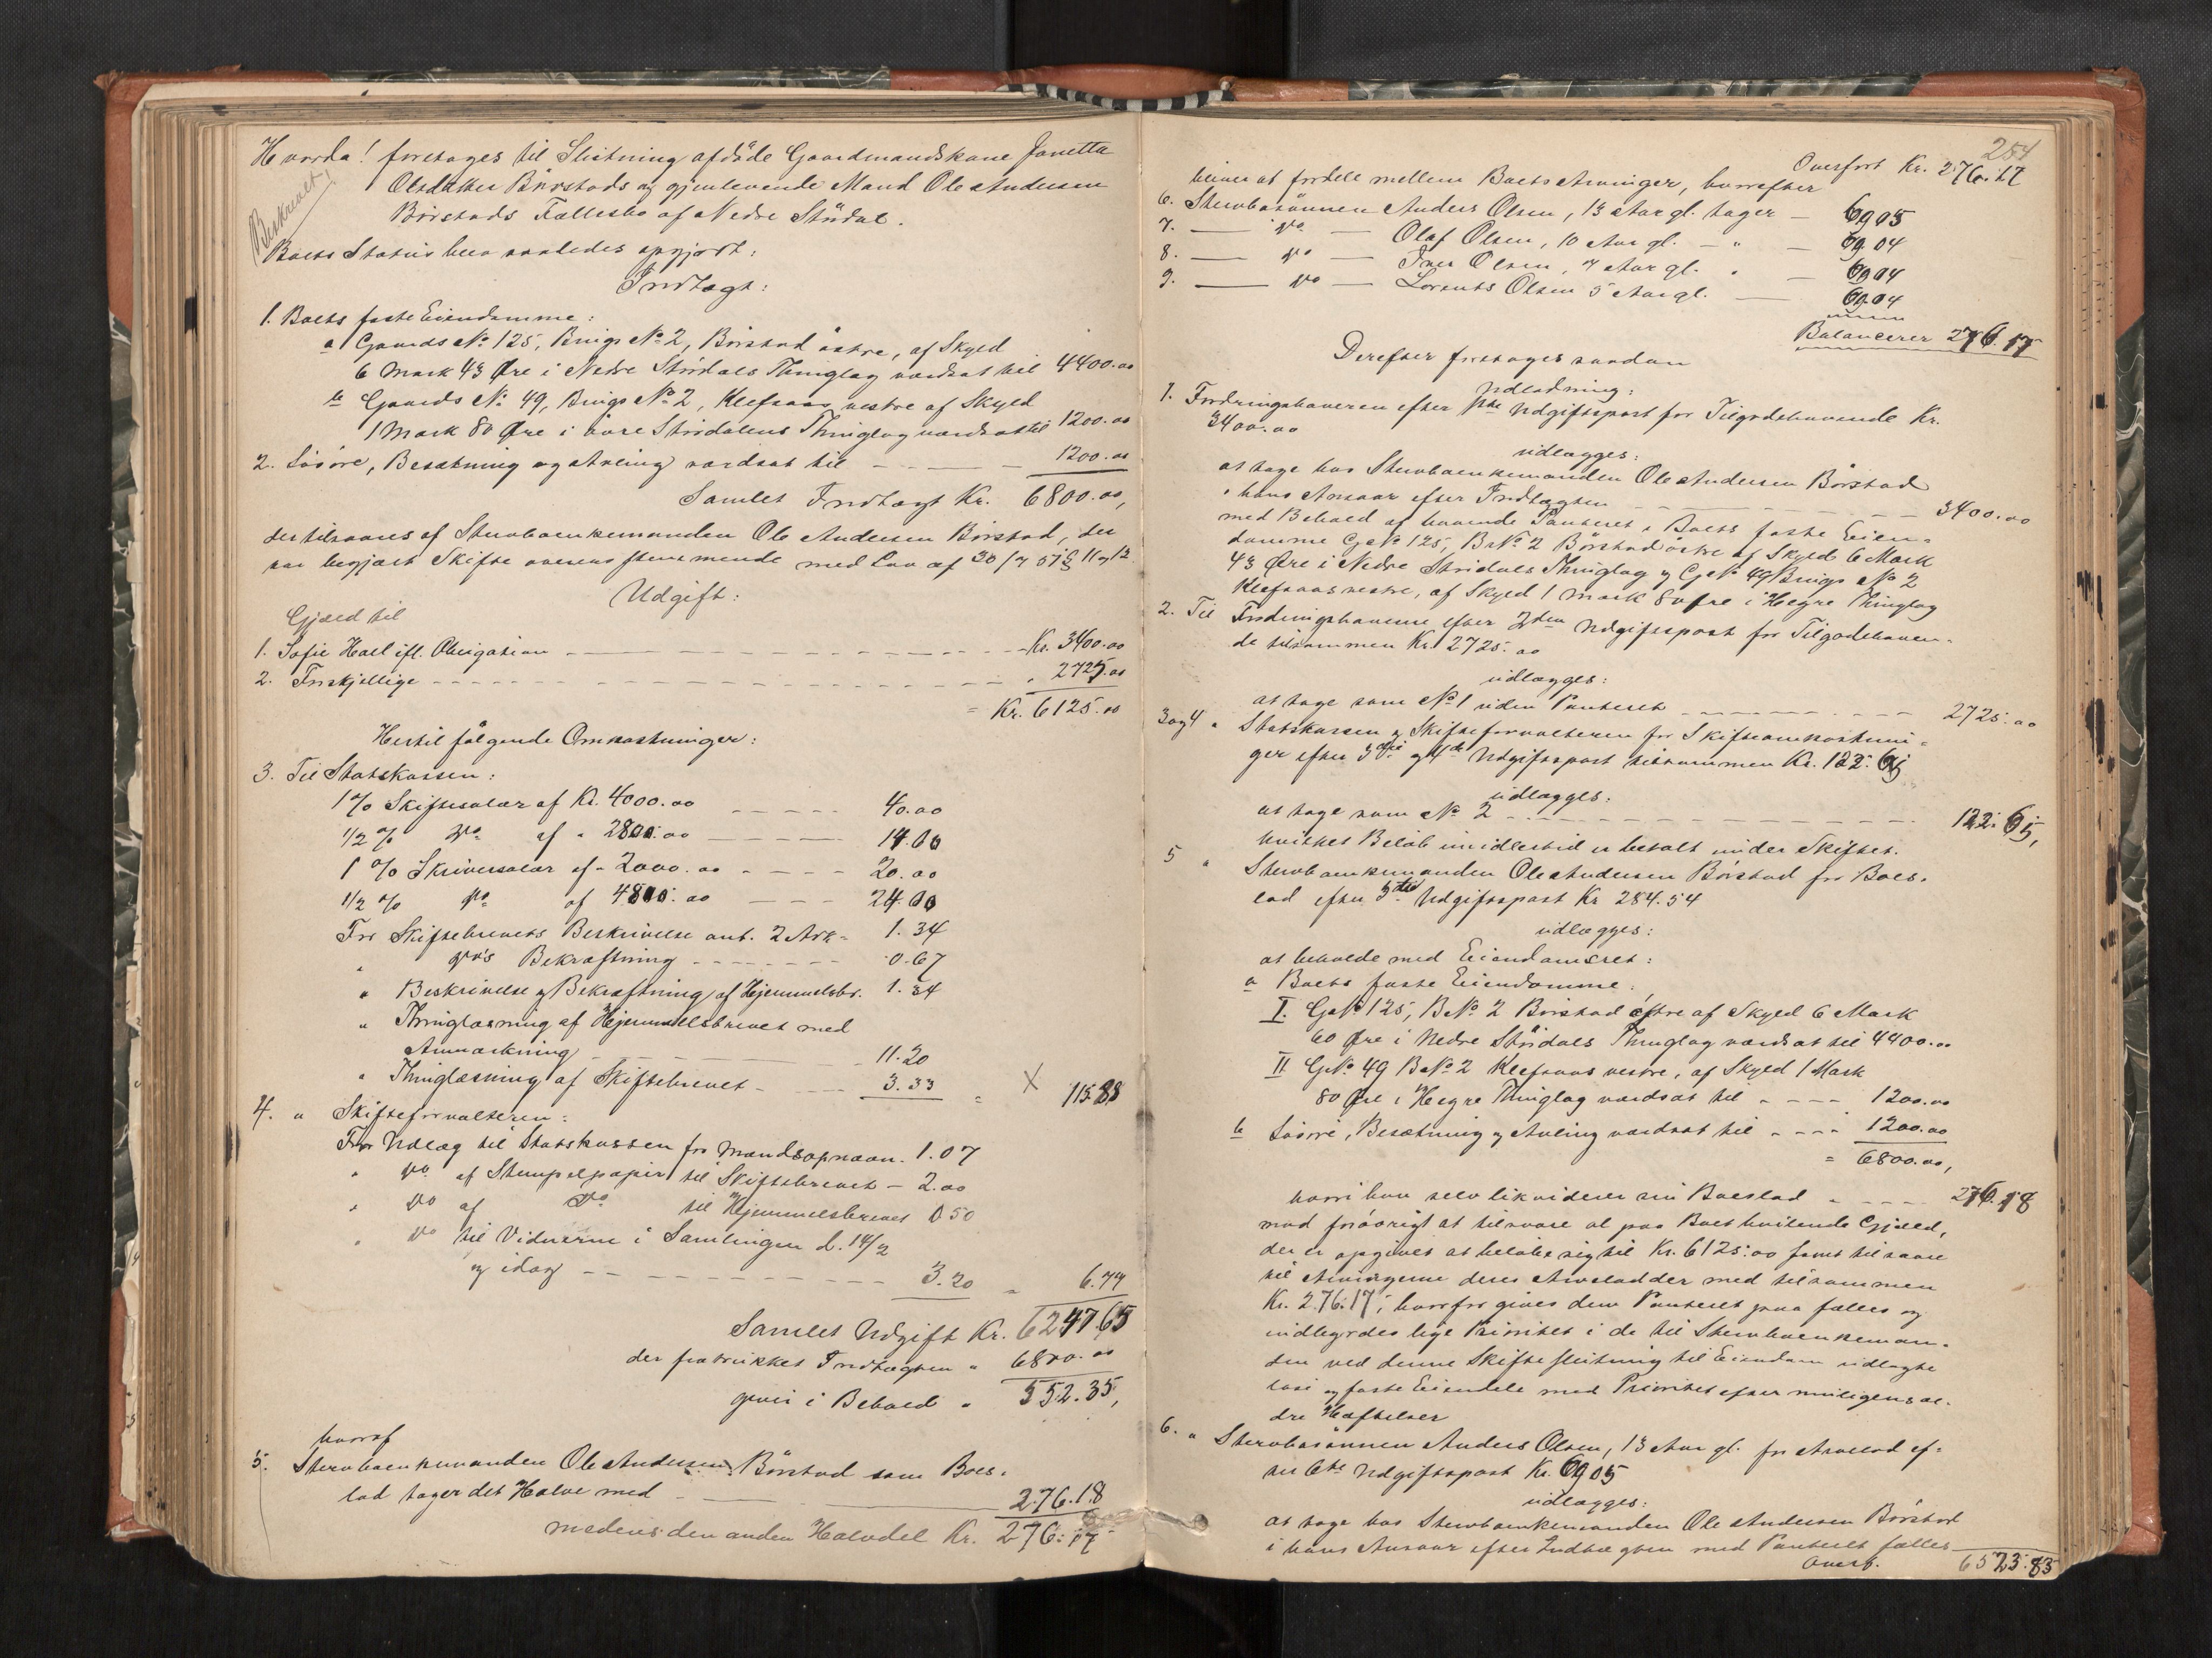 Hvorda! foretages til Slutning afdöde Gaardmandskone Jonetta
Olsdatter Börstads og gjenlevende Mand Ole Andersen
Börstads Fællesbo af Nedre Stördal.
Beskrevet,
Boets Status blev saaledes opgjort:
Indtægt:
1. Boets faste Eiendomme:
a Gaards No 125, Brugs No 2, Börstad östre, af Skyld
6 Mark 43 Øre i Nedre Stördals Thinglag værdsat til 4400.00
b Gaards No 49, Brugs No 2, Klefsaas vestre af Skyld
1 Mark 80 Øre i övre Stördalens Thinglag værdsat til 1200.00
2. Lösöre, Besætning og Avling værdsat til 1200.00
Samlet Indtægt Kr. 6800.00,
der tilsvares af Stervboenkemanden Ole Andersen Börstad, der
har begjært Skifte overensstemmende med Lov af 30/7 51 §§ 11 og 12
Udgift:
Gjæld til
1. Sofie Hael ifl. Obligation Kr. 3400.00
2. Forskjellige " 2725.00
= Kr. 6125.00
Hertil følgende Omkostninger:
3. Til Statskassen:
1 % Skiftesalær af Kr. 4000.00 40.00
1/2 % Do af " 2800.00 14.00
1 % Skriversalær af " 2000.00 20.00
1/2 % Do af 4800.00 24.00
For Skiftebrevets Beskrivelse ant. 2 Ark = 1.34
" Do's Bekræftning 0.67
" Beskrivelse og Bekræftning af Hjemmelsbr. 1.34
" Thinglæsning af Hjemmelsbrevet med
Anmærkning 11.20
" Thinglæsning af Skiftebrevet 3.33 = X 115.88
4. " Skifteforvalteren:
For Udlæg til Statskassen for Mandsopnævn. 1.07
" Do af Stempelpapir til Skiftebrevet 2.00
" Do af Do til Hjemmelsbrevet 0 50
" Do til Vidnerne i Samlingen d. 14/2
og idag 3.20 = 6.77
Samlet Udgift Kr. 6247.65
der fratrukket Indtægten " 6800.00
giver i Behold " 552.35,
hvoraf
5. Stervboenkemanden Ole Andersen Börstad som Boes-
lod tager det Halve med 276.18
medens den anden Halvdel Kr. 276.17
254
Overført Kr. 276.17
bliver at fordele mellem Boets Arvinger, hvorefter
6. Stervbosönnen Anders Olsen, 13 Aar gl. tager 69 05
7. Do Olaf Olsen, 10 Aar gl. " 69.04
8. Do Iver Olsen, 7 Aar gl. " 69.04
9. Do Lorents Olsen 5 Aar gl. 69.04
Balancerer 276.17
Derefter foretages saadan
Udlodning:
1. Fordringshaveren efter 1ste Udgiftspost for Tilgodehavende Kr.
3400.00
udlægges:
at tage hos Stervboenkemanden Ole Andersen Börstad
i hans Ansvar efter Indtægten 3400.00
med Behold af havende Panteret i Boets faste Eien-
domme G No 125, B No 2 Börstad östre af Skyld 6 Mark
43 Øre i Nedre Stördals Thinglag og G No 49 Brugs No 2
Klefsaas vestre, af Skyld 1 Mark 80 Øre i Hegre Thinglag
2. Til Fordringshaverne efter 2den Udgiftspost for Tilgodehaven-
de tilsammen Kr. 2725.00
udlægges:
at tage som No 1 uden Panteret 2725.00
3 og 4 " Statskassen og Skifteforvalteren for Skifteomkostnin-
ger efter 3die og 4de Udgiftspost tilsammen Kr. 122.65
udlægges:
at tage som No 2 122.65,
hvilket Belöb imidlertid er betalt under Skiftet.
5 " Stervboenkemanden Ole Andersen Börstad for Boes-
lod efter 5te Udgiftspost Kr 284.54
udlægges:
at beholde med Eiendomsret:
a Boets faste Eiendomme:
I. G No 125, B No 2 Börstad östre af Skyld 6 Mark
60 Øre i Nedre Stördals Thinglag værdsat til 4400.00
II G No 49 B No 2 Klefsaas vestre, af Skyld 1 Mark
80 Øre i Hegre Thinglag værdsat til 1200.00
b Lösöre, Besætning og Avling værdsat til 1200.00
= 6800.00,
hvori han selv likviderer sin Boeslod 276.18
mod foröovrigt at tilsvare al paa Boet hvilende Gjæld,
der er opgivet at belöbe sig til Kr. 6125.00 samt tilsvare
til Arvingerne deres Arvelodder med tilsammen
Kr. 276.17, hvorfor gives dem Panteret paa fælles og
indbyrdes lige Prioritet i de til Stervboenkeman-
den ved denne Skifteslutning til Eiendom udlagte
löse og faste Eiendele med Prioritet efter muligens æl-
dre Hæftelser
6. " Stervbosönnen Anders Olsen, 13 Aar gl. for Arvelod ef-
ter 6te Udgiftspost Kr. 69 05
udlægges:
at tage hos Stervboenkemanden Ole Andersen Börstad
i hans Ansvar efter Indtægten med Panteret fælles
Overf. 6523.83